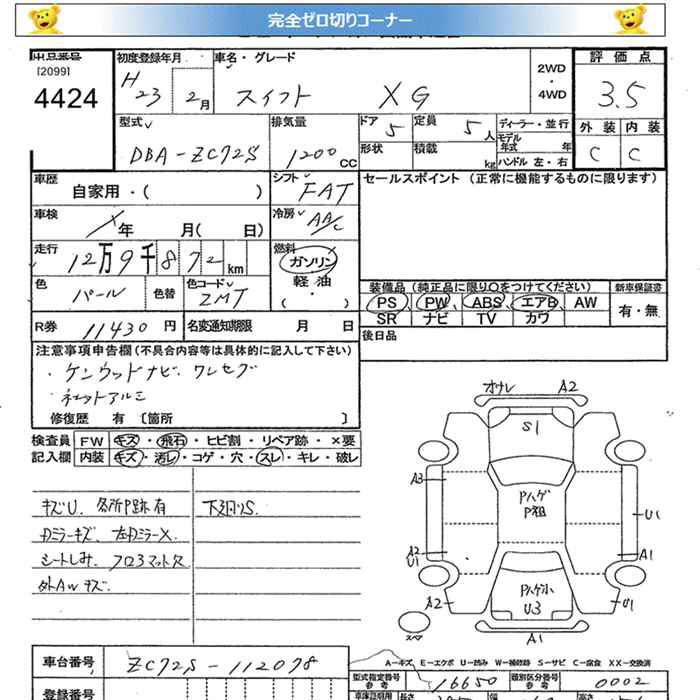 完全ゼロ切りコーナー
出品番号
[2099]
4424
初度登録年月
H 23 2月
車名・グレード
スイフト XG
2WD
・
4WD
評価点
3.5
外装 内装
C C
型式
DBA-ZC72S
排気量
1200 CC
ドア 5
定員 5人
形状
積載 kg
ディーラー・並行
モデル年式 年
ハンドル 左・右
車歴
自家用・( )
シフト FAT
セールスポイント (正常に機能するものに限ります)
車検
年 月( 日)
冷房 AAC
走行
12万9千872km
燃料
ガソリン
軽油
( ・ )
色 パール
色替
色コード ZMT
装備品 (純正品に限り○をつけてください)
PS PW ABS エアB AW
SR ナビ TV カワ
新車保証書
有・無
R券 11430 円
名変通知期限 月 日
後日品
注意事項申告欄 (不具合内容等は具体的に記入して下さい)
・ケンウッドナビ・ワンセグ
・ネットアルミ
修復歴 有 〔箇所 〕
検査員 FW キズ・飛石・ヒビ割・リペア跡・×要
記入欄 内装 キズ・汚レ・コゲ・穴・スレ・キレ・破レ
キズU. 各所P跡有
下廻りS.
シートしみ. フロ3マット欠
外AWキズ
A2
S1
A3
Pハゲ
U1
A2
U1
A1
A2
Pハゲ小
U3
U1
スペア
A1
A-キズ E-エクボ U-凹み W-補修跡 S-サビ C-腐食 XX-交換済
車台番号 ZC72S-112078
型式指定番号
参考
16650
類別区分番号
参考
0002
登録番号